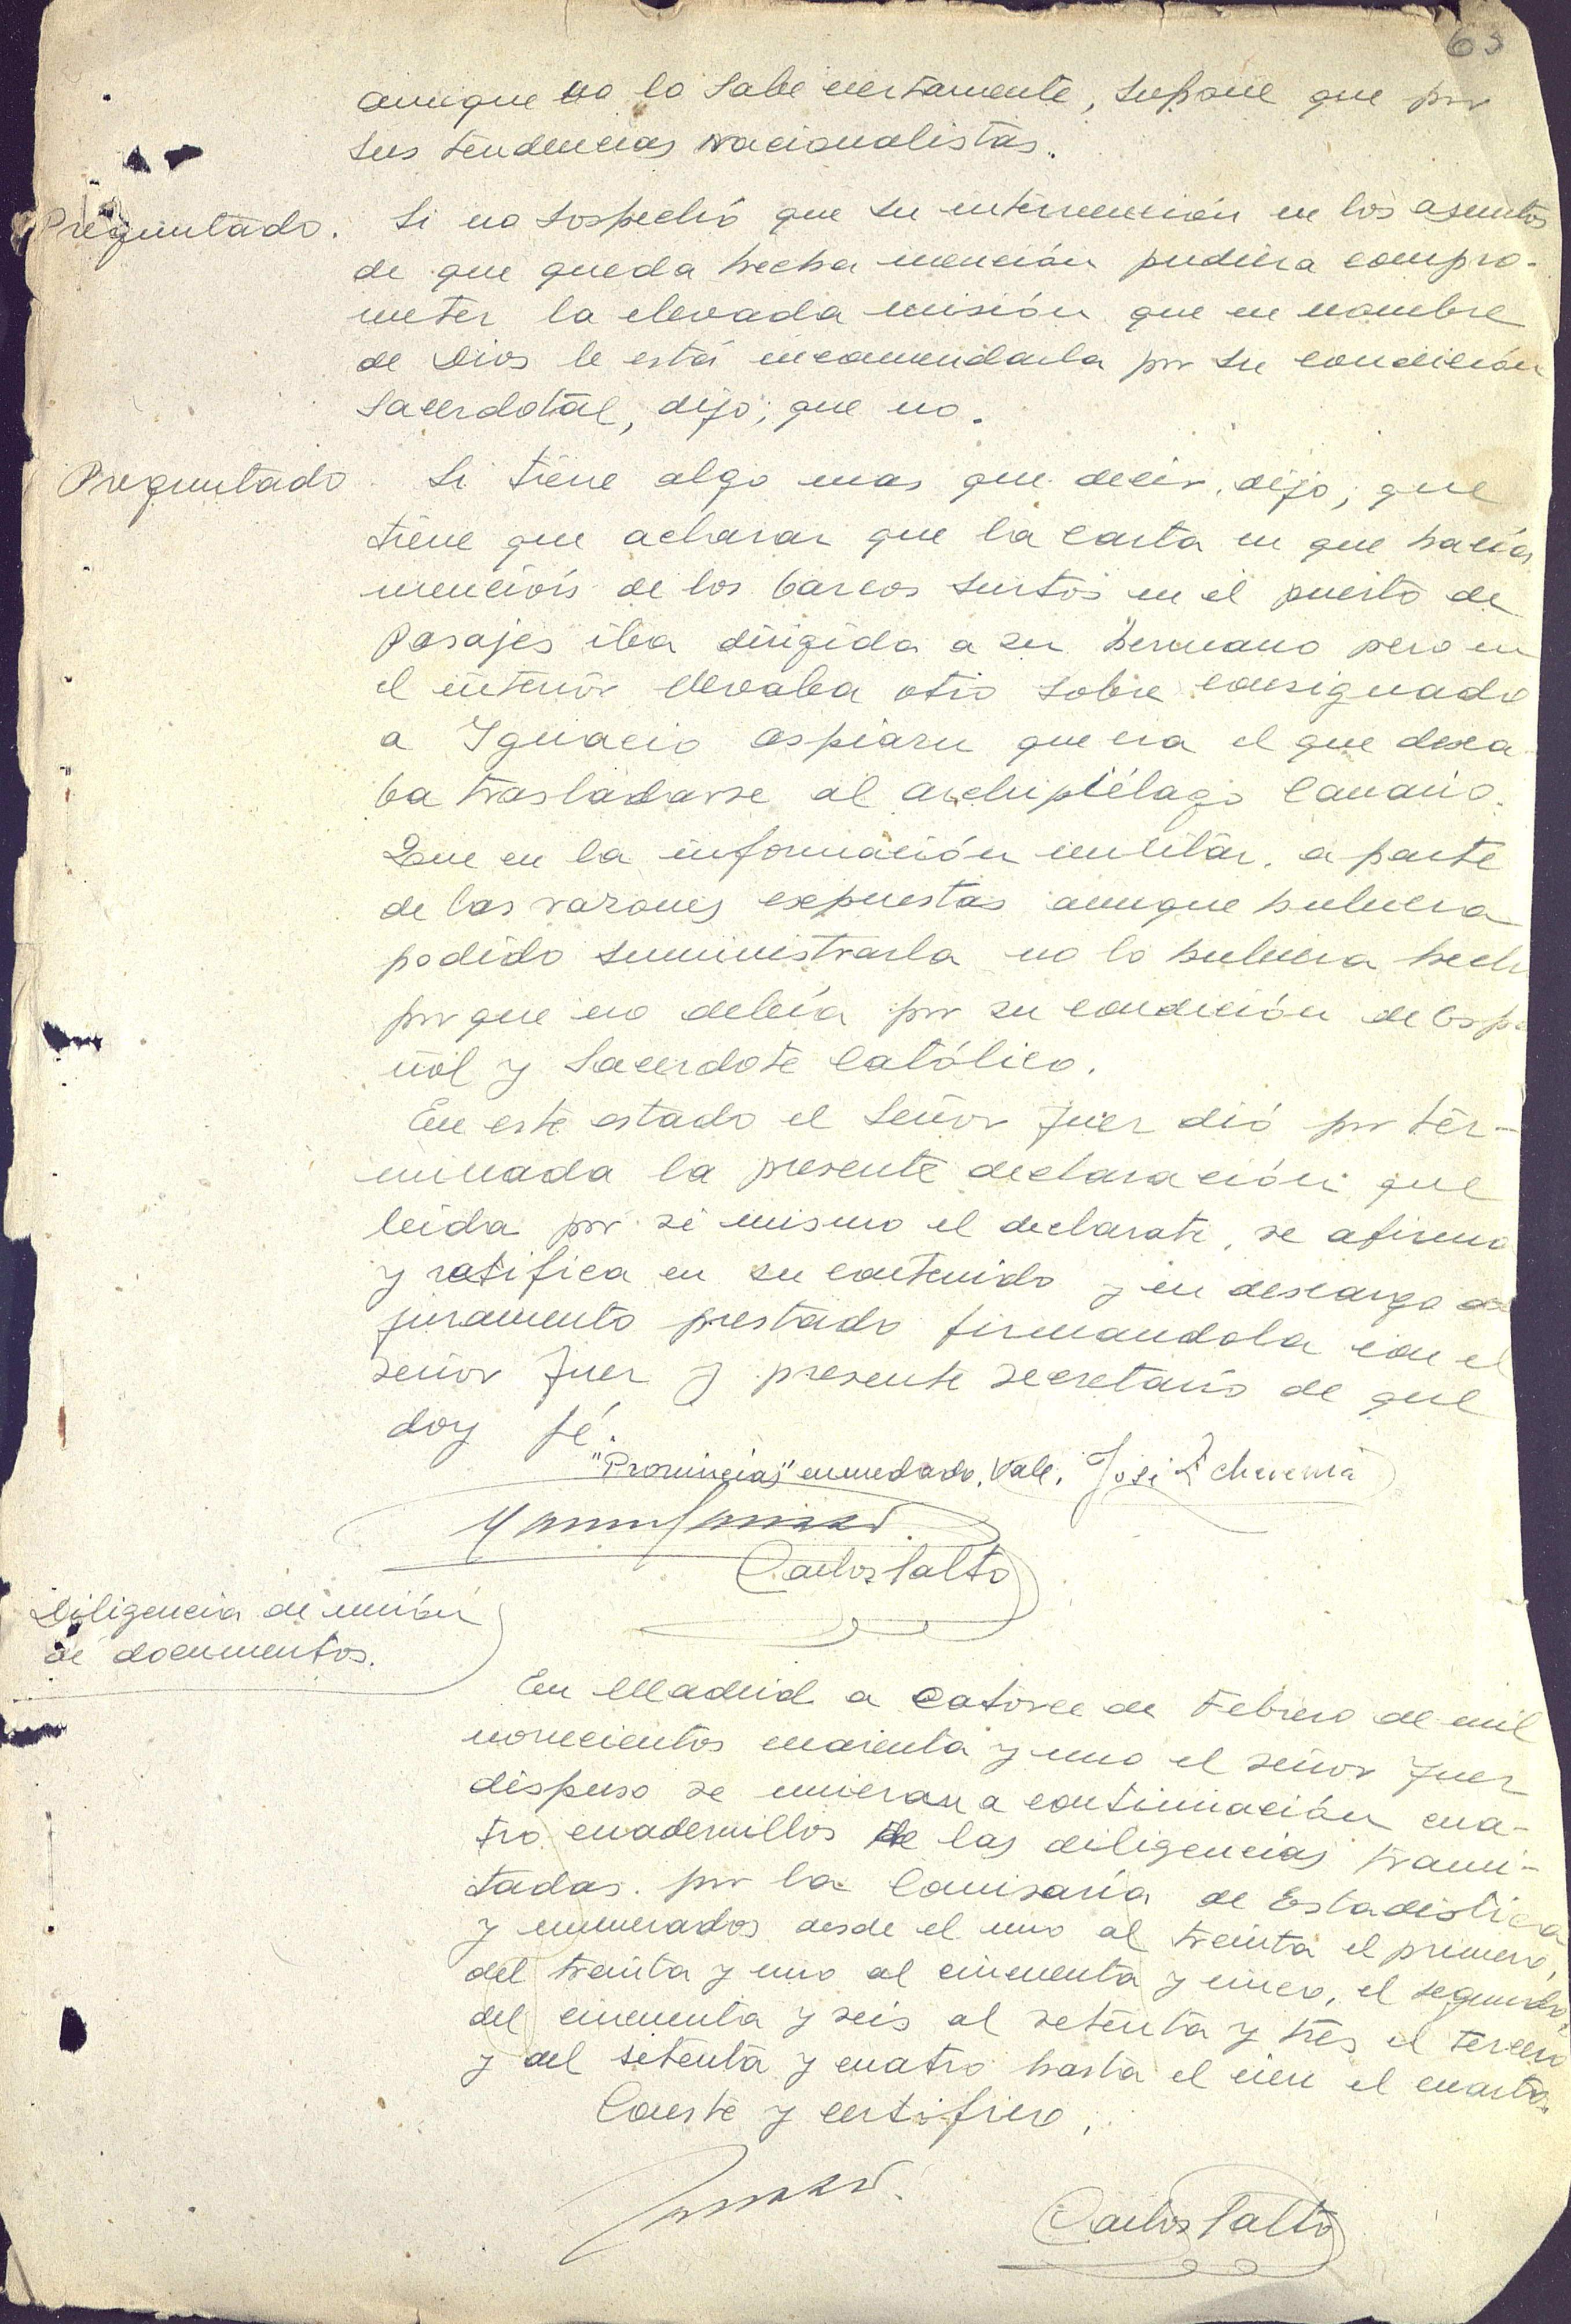 65
aunque no lo sabe ciertamente, supone que por
sus tendencias nacionalistas.
Preguntado. Si no sospechó que su intervención en los asuntos
de que queda hecha mención pudiera compro-
meter la elevada misión que en nombre
de Dios le está encomendada por su condición
Sacerdotal, dijo; que no.
Preguntado. Si tiene algo mas que decir, dijo; que
tiene que aclarar que la carta en que hacía
mención de los barcos surtos en el puerto de
Pasajes iba dirigida a su hermano pero en
el interior llevaba otro sobre consignado
a Ygnacio Aspiazu que era el que desea
ba trasladarse al archipiélago Canario.
Que en la información militar, a parte
de las razones expuestas aunque hubiera
podido suministrarla no lo hubiera hecho
por que no debía por su condición de Espa
ñol y Sacerdote Católico.
En este estado el Señor Juez dió por ter-
minada la presente declaración que
leida por si mismo el declarate, se afirma
y ratifica en su contenido y en descargo de
juramento prestado firmandola con el
señor Juez y presente Secretario de que
doy fé.
"Provincias" enmedado. Vale. José Echeverria
Carlos Salto
Diligencia de unión
de documentos.
En Madrid a catorce de Febrero de mil
novecientos cuarenta y uno el señor Juez
dispuso se unieran a continuación cua-
tro cuadernillos de las diligencias trami-
tadas por la Comisaría de Estadistica
y enumerados desde el uno al treinta el primero,
del treinta y uno al cincuenta y cinco, el segundo,
del cincuenta y seis al setenta y tres el tercero
y del setenta y cuatro hasta el cien el cuarto.
Conste y certifico.
Carlos Salto